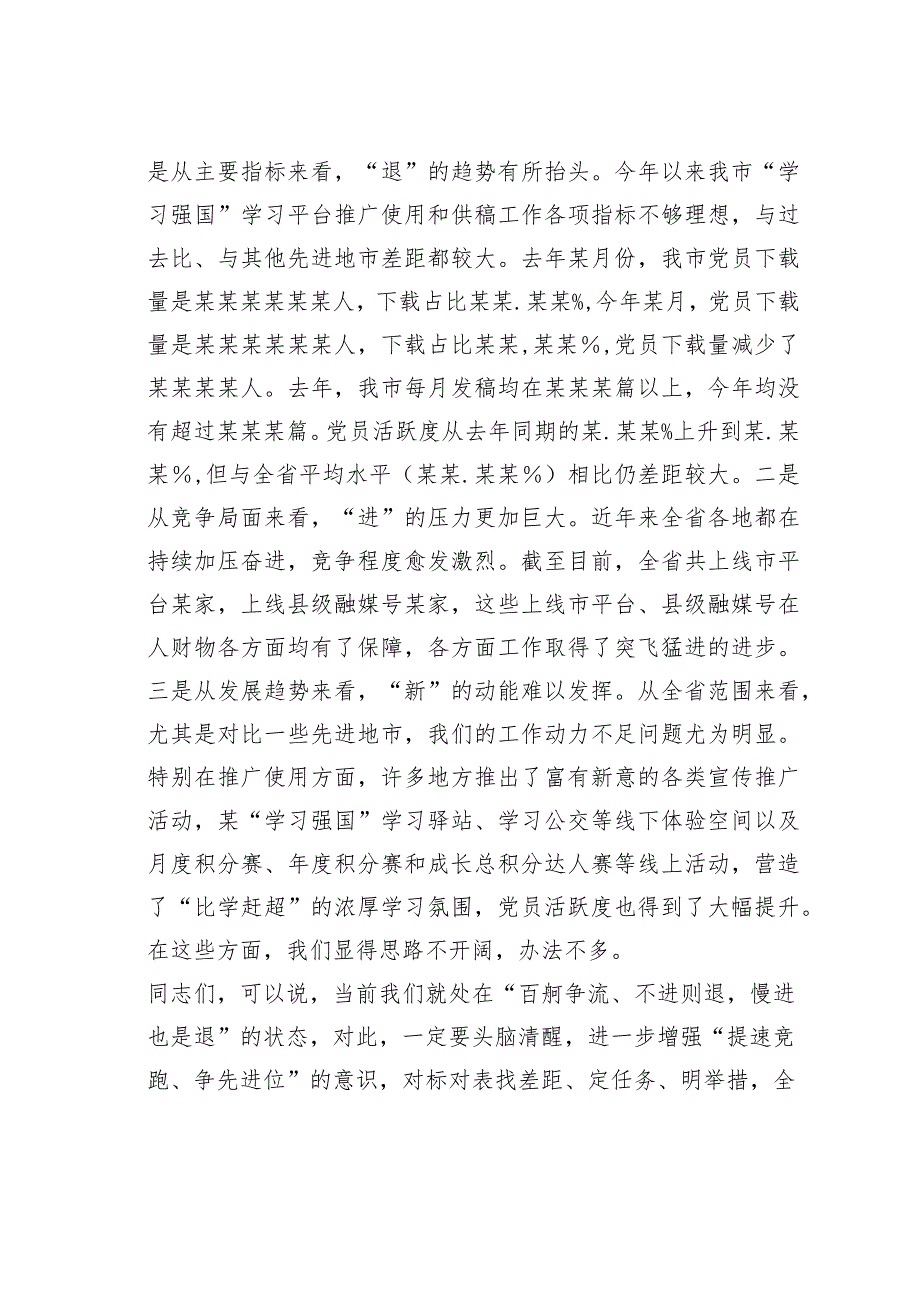 是从主要指标来看，“退”的趋势有所抬头。今年以来我市“学
习强国”学习平台推广使用和供稿工作各项指标不够理想，与过
去比、与其他先进地市差距都较大。去年某月份，我市党员下载
量是某某某某某某人，下载占比某某.某某%,今年某月，党员下载
量是某某某某某某人，下载占比某某,某某％,党员下载量减少了
某某某某人。去年，我市每月发稿均在某某某篇以上，今年均没
有超过某某某篇。党员活跃度从去年同期的某.某某%上升到某.某
某％,但与全省平均水平（某某.某某％）相比仍差距较大。二是
从竞争局面来看，“进”的压力更加巨大。近年来全省各地都在
持续加压奋进，竞争程度愈发激烈。截至目前，全省共上线市平
台某家，上线县级融媒号某家，这些上线市平台、县级融媒号在
人财物各方面均有了保障，各方面工作取得了突飞猛进的进步。
三是从发展趋势来看，“新”的动能难以发挥。从全省范围来看，
尤其是对比一些先进地市，我们的工作动力不足问题尤为明显。
特别在推广使用方面，许多地方推出了富有新意的各类宣传推广
活动，某“学习强国”学习驿站、学习公交等线下体验空间以及
月度积分赛、年度积分赛和成长总积分达人赛等线上活动，营造
了“比学赶超”的浓厚学习氛围，党员活跃度也得到了大幅提升。
在这些方面，我们显得思路不开阔，办法不多。
同志们，可以说，当前我们就处在“百舸争流、不进则退，慢进
也是退”的状态，对此，一定要头脑清醒，进一步增强“提速竞
跑、争先进位”的意识，对标对表找差距、定任务、明举措，全